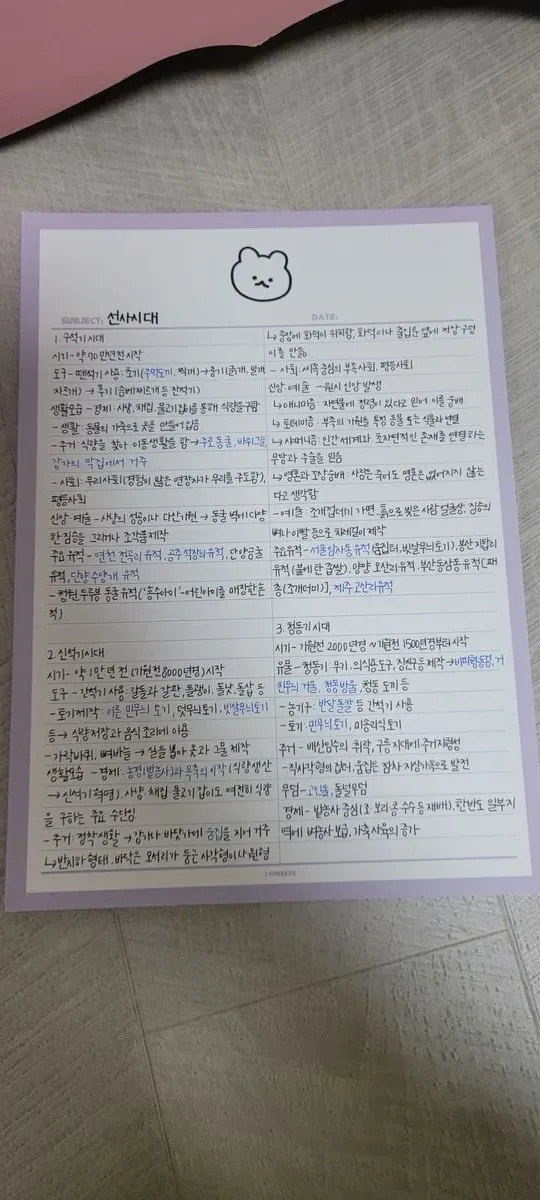 SUBJECT: 선사시대
DATE:
1. 구석기시대
시기 - 약 70만년전 시작
도구 - 뗀석기 사용: 초기(주먹도끼, 찍개) → 중기(긁개, 밀개
자르개) → 후기(슴베찌르개 등 잔석기)
생활모습 - 경제: 사냥, 채집, 물고기잡이를 통해 식량을 구함
- 생활: 동물의 가죽으로 옷을 만들어 입음
- 주거: 식량을 찾아 이동생활을 함 → 주로 동굴, 바위그늘,
강가의 막집에서 거주
- 사회: 무리사회(경험이 많은 연장자가 무리를 주도함),
평등사회
신앙·예술 - 사냥의 성공이나 다산 기원 → 동굴 벽에 다양
한 짐승을 그리거나 조각품 제작
주요 유적 - 연천 전곡리 유적, 공주 석장리 유적, 단양 금굴
유적, 단양 수양개 유적
- 청원 두루봉 동굴 유적('흥수아이'-어린아이를 매장한 흔
적)
2. 신석기시대
시기 - 약 1만 년 전 (기원전 8000년경) 시작
도구 - 간석기 사용: 갈돌과 갈판, 돌괭이, 돌낫, 돌삽 등
- 토기제작: 이른 민무늬 토기, 덧무늬토기, 빗살무늬토기
등 → 식량 저장과 음식 조리에 이용
- 가락바퀴, 뼈바늘 → 실을 뽑아 옷과 그물 제작
생활모습 - 경제: 농경(밭농사)과 목축의 시작 (식량 생산
→ 신석기 혁명), 사냥·채집·물고기 잡이도 여전히 식량
을 구하는 주요 수단임
- 주거: 정착생활 → 강가나 바닷가에 움집을 지어 거주
↳ 반지하 형태, 바닥은 모서리가 둥근 사각형이나 원형
↳ 중앙에 화덕이 위치함, 화덕이나 출입문 옆에 저장 구덩
이를 만듦
- 사회: 씨족 중심의 부족사회, 평등사회
신앙·예술 - 원시 신앙 발생
↳ 애니미즘: 자연물에 정령이 있다고 믿어 이를 숭배
↳ 토테미즘: 부족의 기원을 특정 동물 또는 식물과 연결
↳ 샤머니즘: 인간 세계와 초자연적인 존재를 연결하는
무당과 주술을 믿음
↳ 영혼과 조상숭배: 사람은 죽어도 영혼은 없어지지 않는
다고 생각함
- 예술: 조개껍데기 가면, 흙으로 빚은 사람 얼굴상, 짐승의
뼈나 이빨 등으로 치레걸이 제작
주요유적 - 서울 암사동 유적(움집터, 빗살무늬토기), 봉산 지탑리
유적(불에 탄 좁쌀), 양양 오산리 유적, 부산 동삼동 유적[패
총(조개더미)], 제주 고산리 유적
3. 청동기 시대
시기 - 기원전 2000년경 ~ 기원전 1500년경부터 시작
유물 - 청동기: 무기·의식용 도구, 장신구 등 제작 → 비파형동검, 거
친무늬 거울, 청동방울, 청동 도끼 등
- 농기구: 반달돌칼 등 간석기 사용
- 토기: 민무늬토기, 미송리식토기
주거 - 배산임수의 취락, 구릉지대에 주거지 형성
- 직사각형의 집터, 움집은 점차 지상가옥으로 발전
무덤 - 고인돌, 돌널무덤
경제 - 밭농사 중심(조·보리·콩·수수 등 재배), 한반도 일부 지
역에 벼농사 보급, 가축 사육의 증가